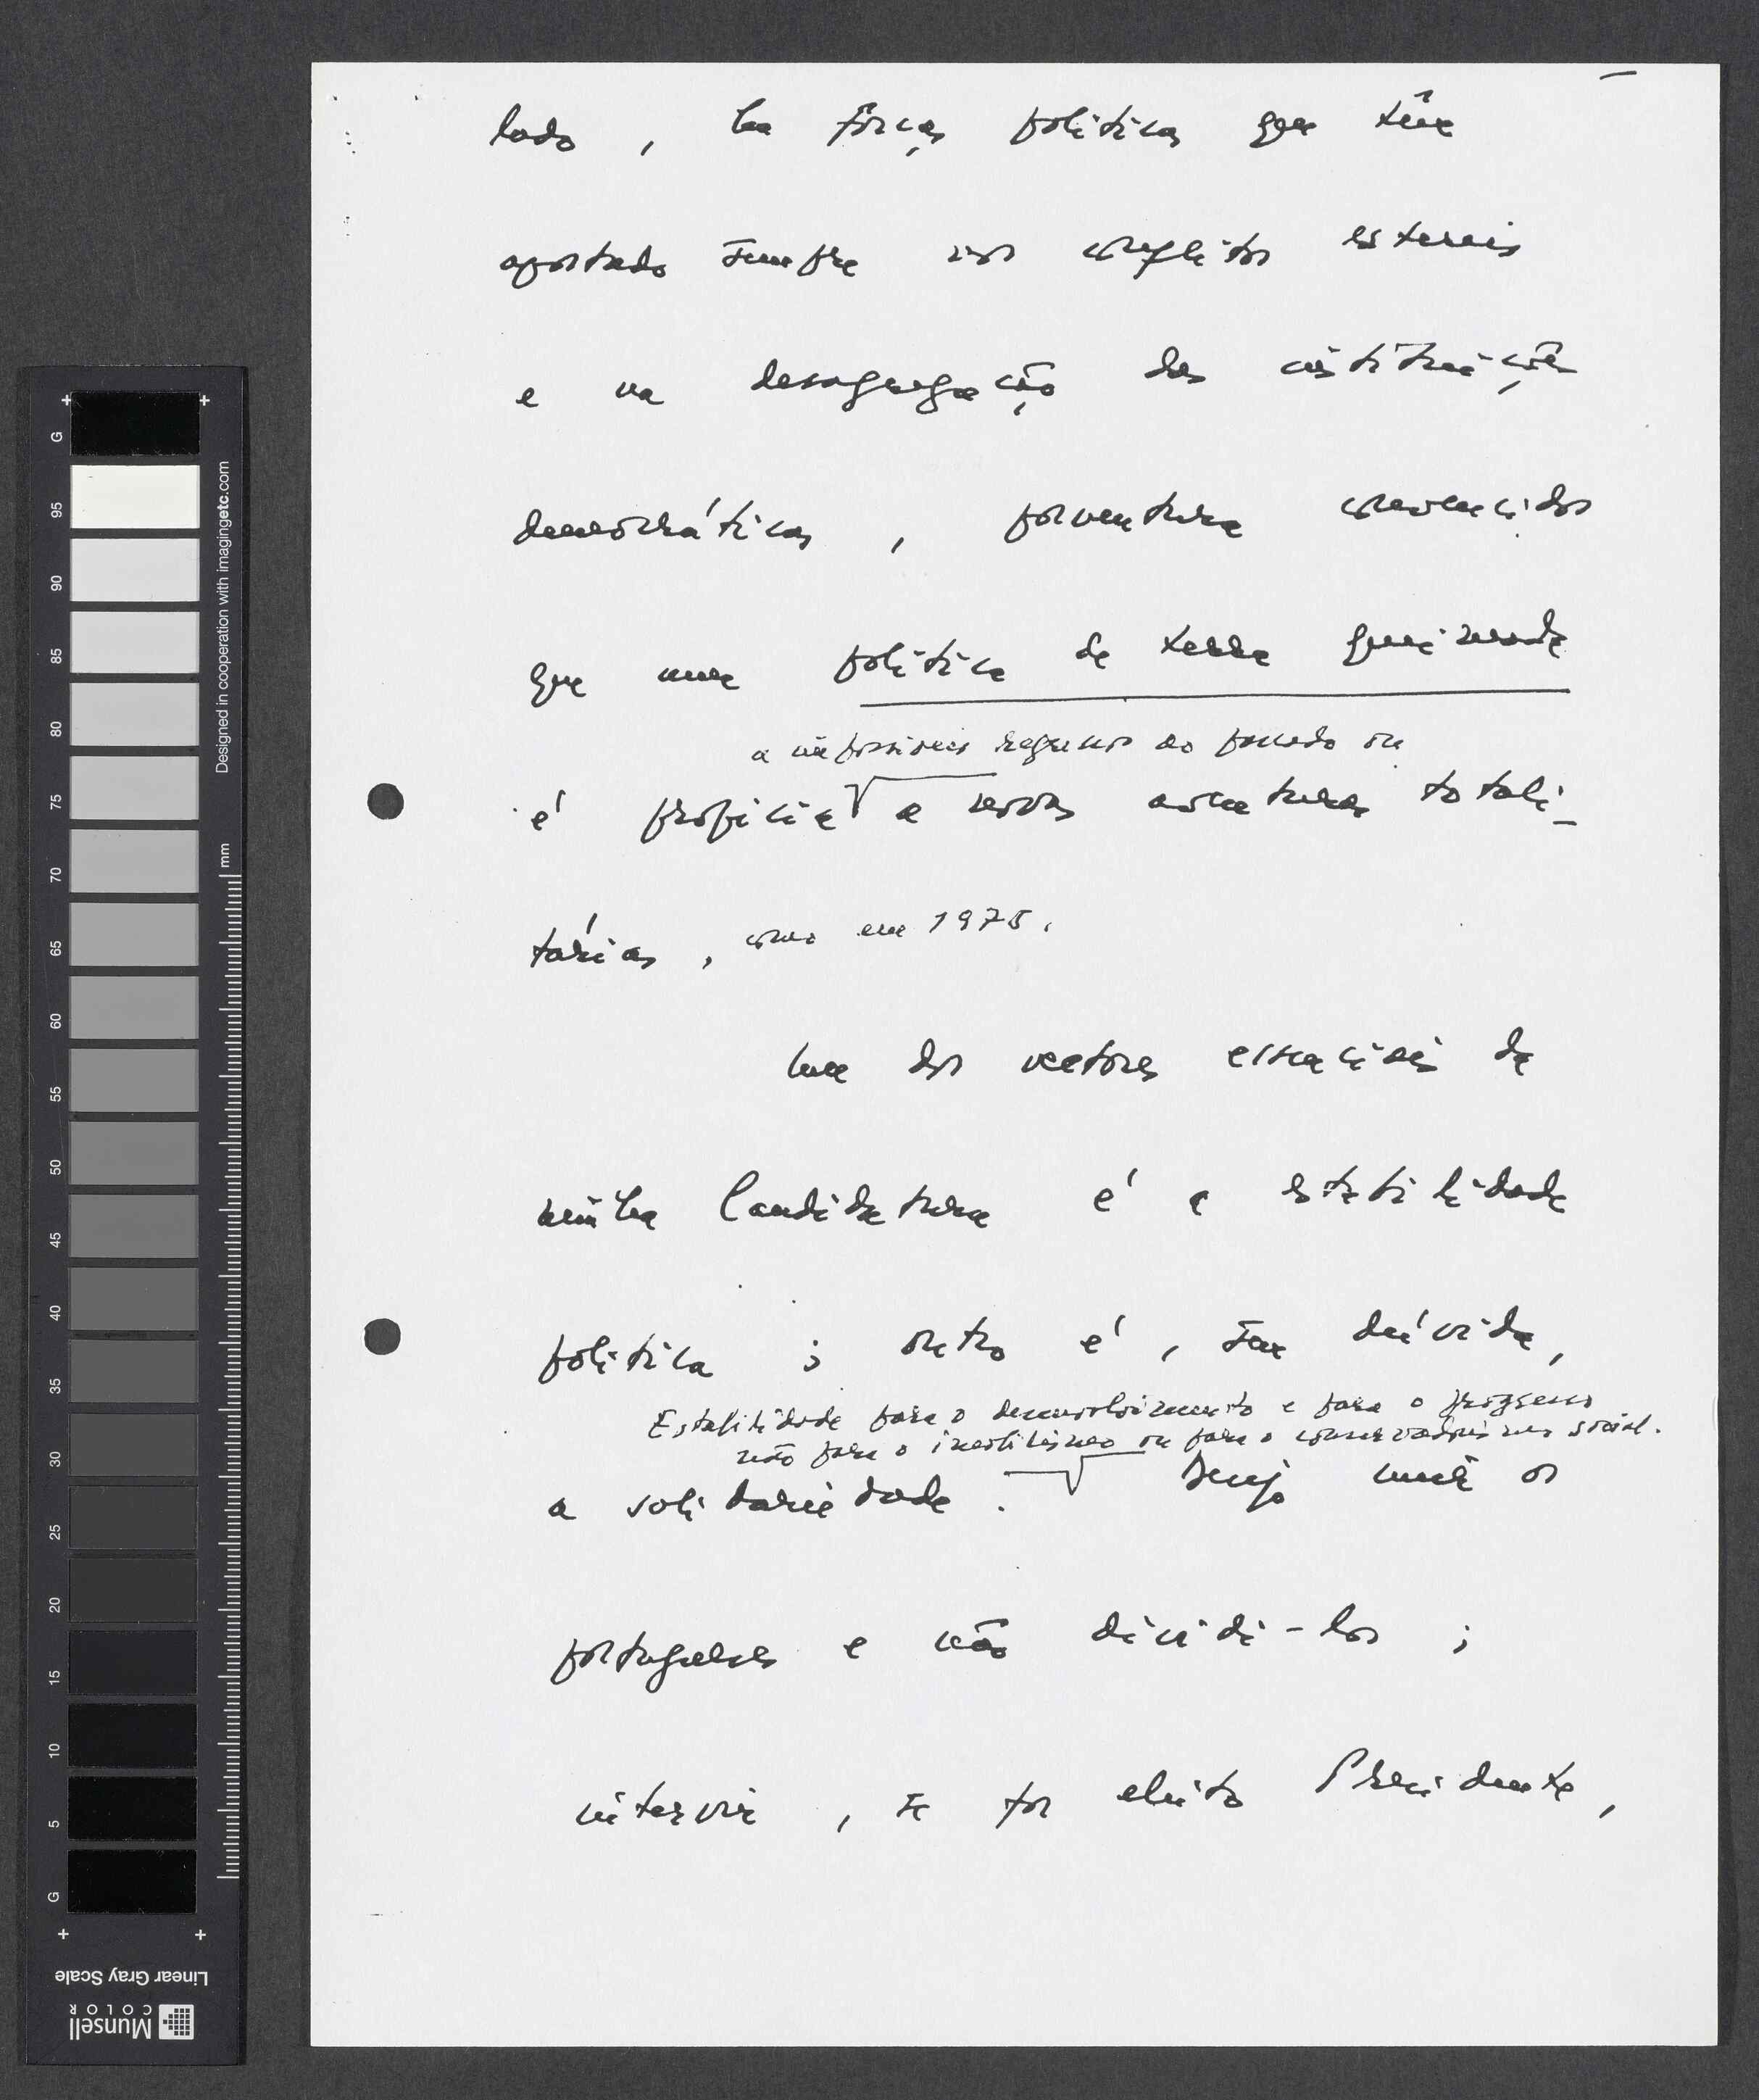 lado, há forças políticas que têm
apostado sempre nos conflitos estéreis
e na desagregação das instituições
democráticas, porventura convencidos
que uma política de terra queimada
a impossíveis regressos ao passado ou
é propícia a novas aventuras totali-
tárias, como em 1975.
Um dos vectores essenciais da
minha Candidatura é a estabilidade
política; outro é, sem dúvida,
Estabilidade para o desenvolvimento e para o progresso
não para o imobilismo ou para o conservadorismo social.
a solidariedade. Desejo unir os
portugueses e não dividi-los;
intervir, se for eleito Presidente,
G
95
90
85
80
75
70
65
60
55
50
45
40
35
30
25
20
15
10
5
G
mm
Designed in cooperation with imagingetc.com
Linear Gray Scale
Munsell
COLOR